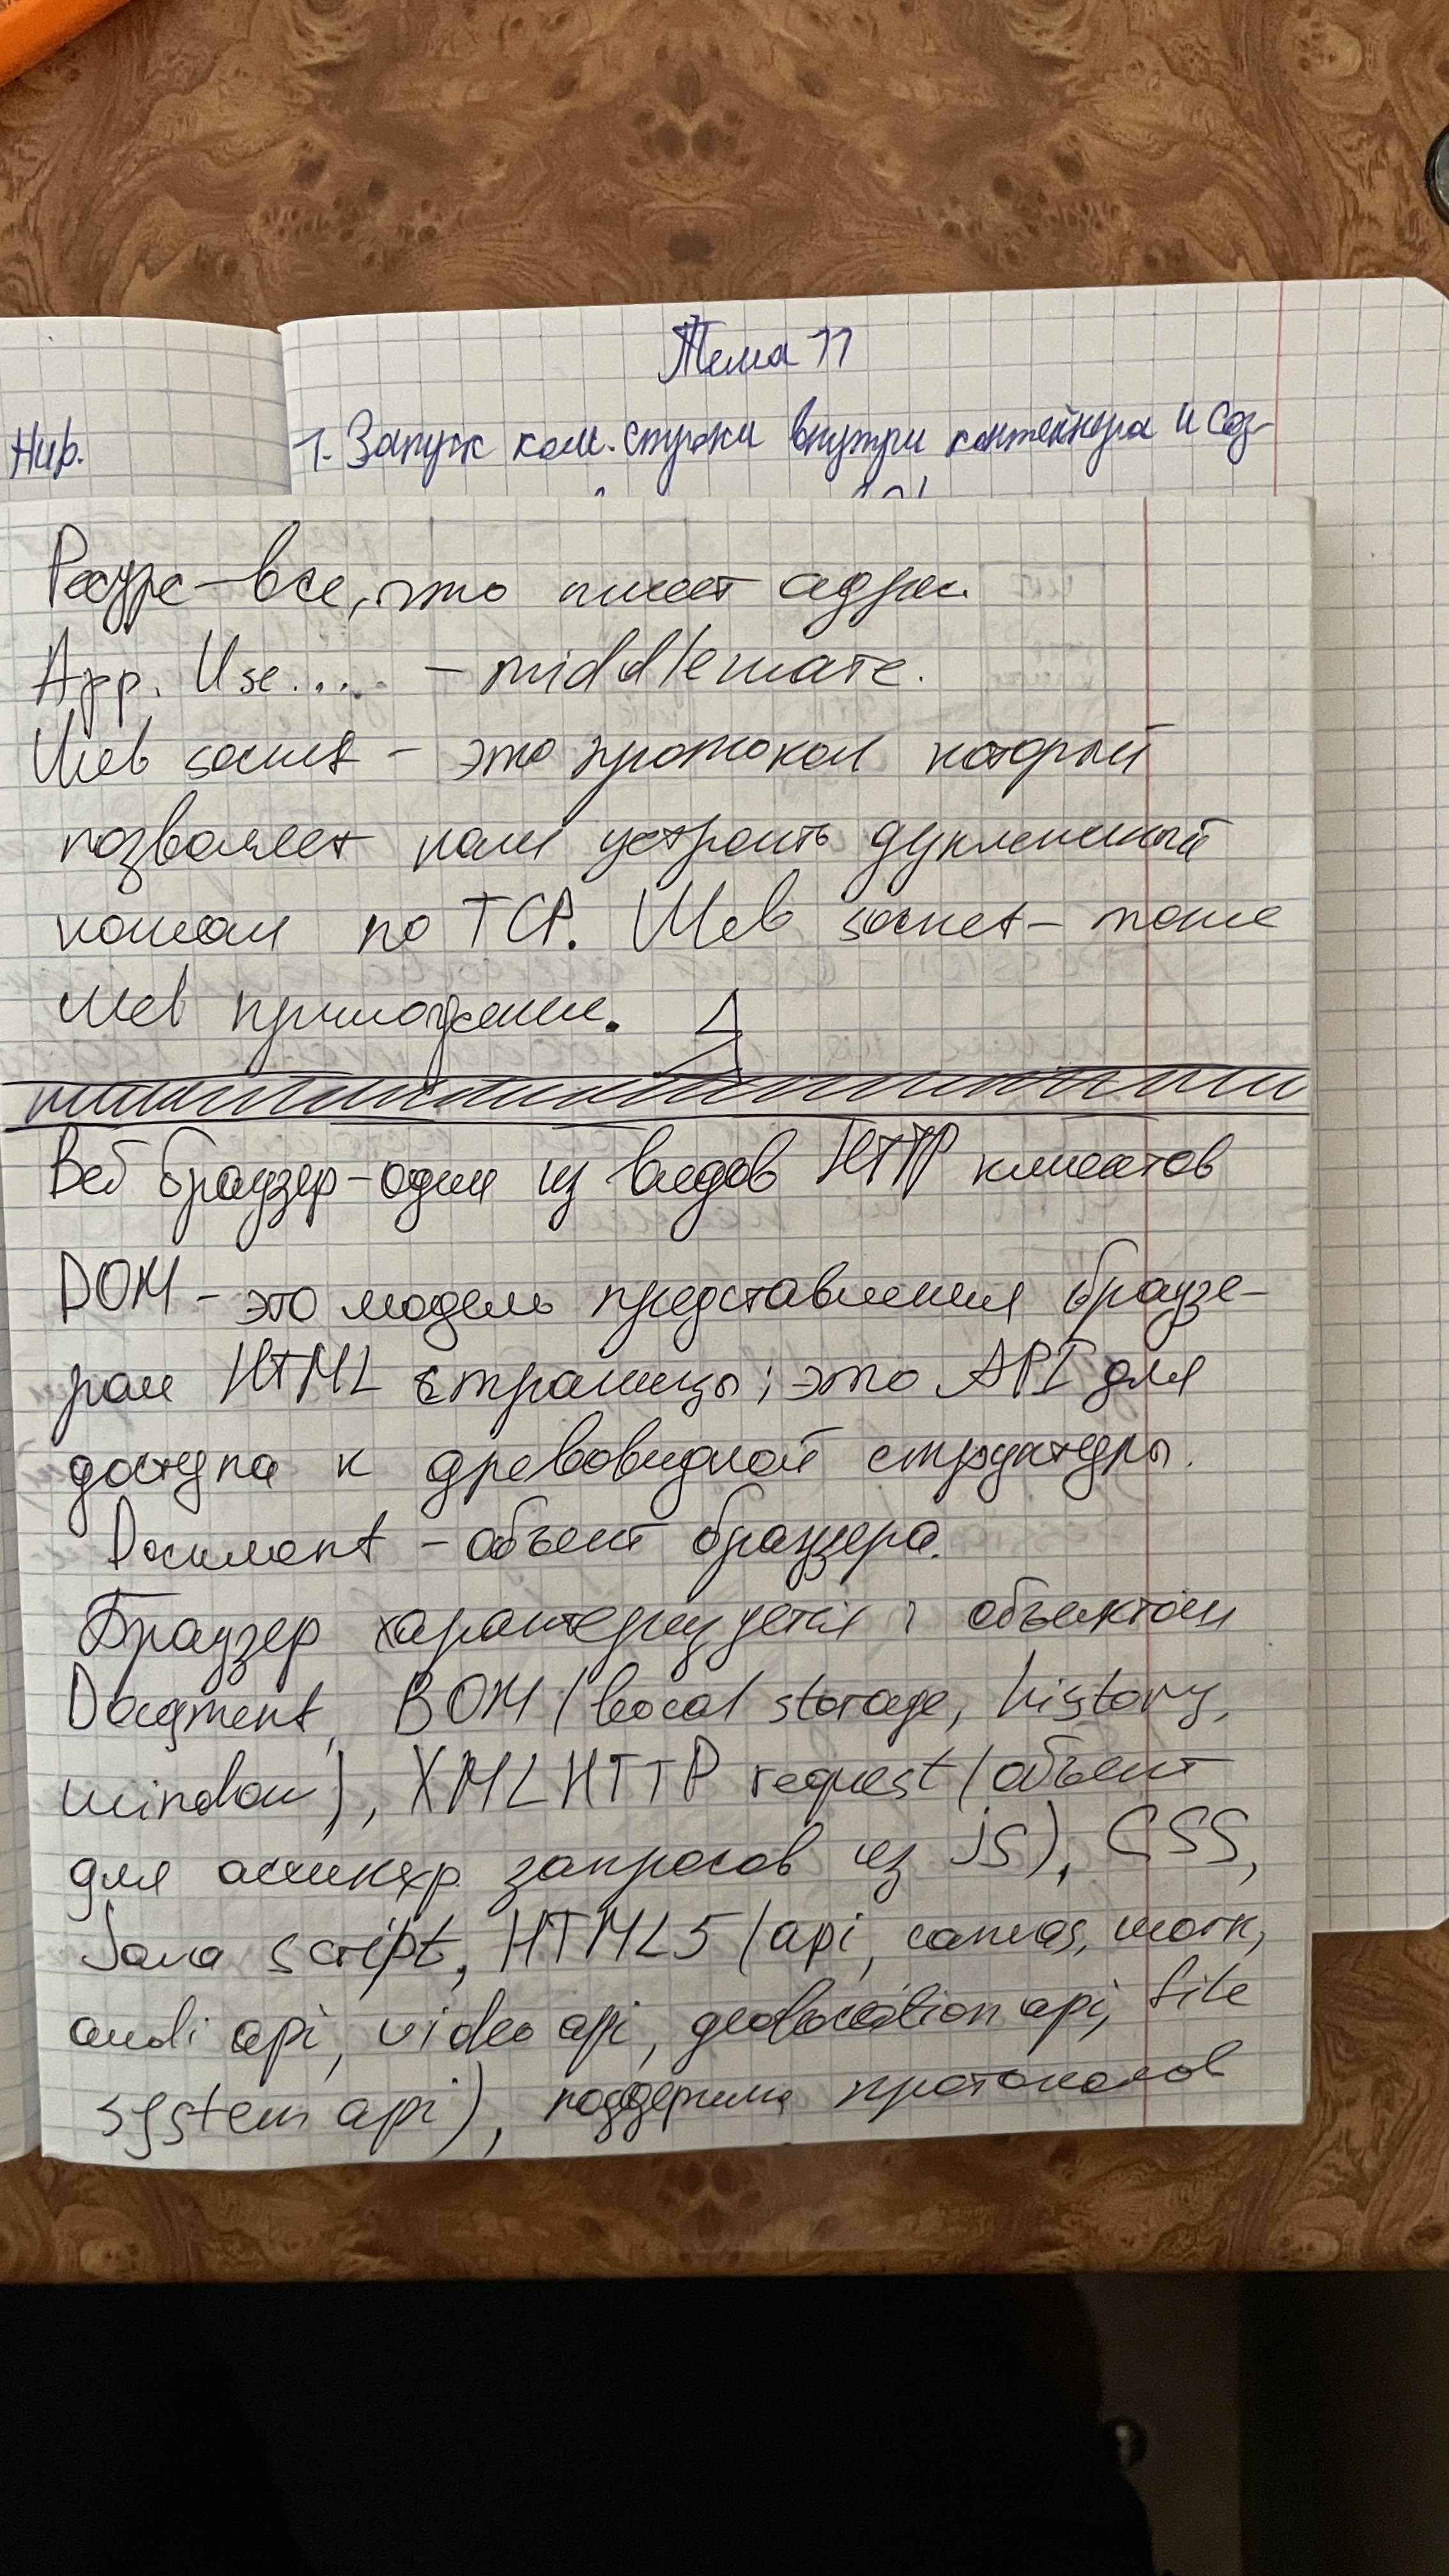 Тема 11
Hub.
1. Запуск ком. строки внутри контейнера и соз-
Ресурс – все, что имеет адрес.
App. Use.... – middleware.
Web socket – это протокол который
позволяет нам устроить дуплексный
канал по TCP. Web socket – тоже
Web приложение.
Веб браузер – один из видов HTTP клиентов
DOM – это модель представления браузе-
ром HTML страницы; это API для
доступа к древовидной структуры.
Document – объект браузера.
Браузер характеризуется: объектом
Document, BOM (local storage, history,
window), XMLHTTP request (объект
для асинхр. запросов из JS), CSS,
Java script, HTML5 (api, canvas, work,
audi api, video api, geolocation api, file
system api), поддержка протоколов